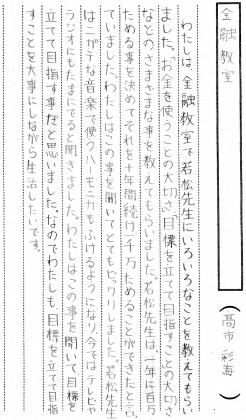 金融教室
(髙市 彩海)
わたしは、金融教室で若松先生にいろいろなことを教えてもらい
ました。「お金を使うことの大切さ」「目標を立てて目指すこと」の大切さ
などのさまざまな事を教えてもらいました。若松先生は、一年に百万
ためる事を決めてそれを十年間続け一千万ためることができたと言っ
ていました。わたしはこの事を聞いてとてもビックリしました。若松先生
はニガテな音楽で使うハーモニカもふけるようになり、今ではテレビや
ラジオにもたまにでると聞きました。わたしはこの事を聞いて、目標を
立てて目指す事だと思いました。なのでわたしも、目標を立てて目指
すことを大事にしながら生活したいです。